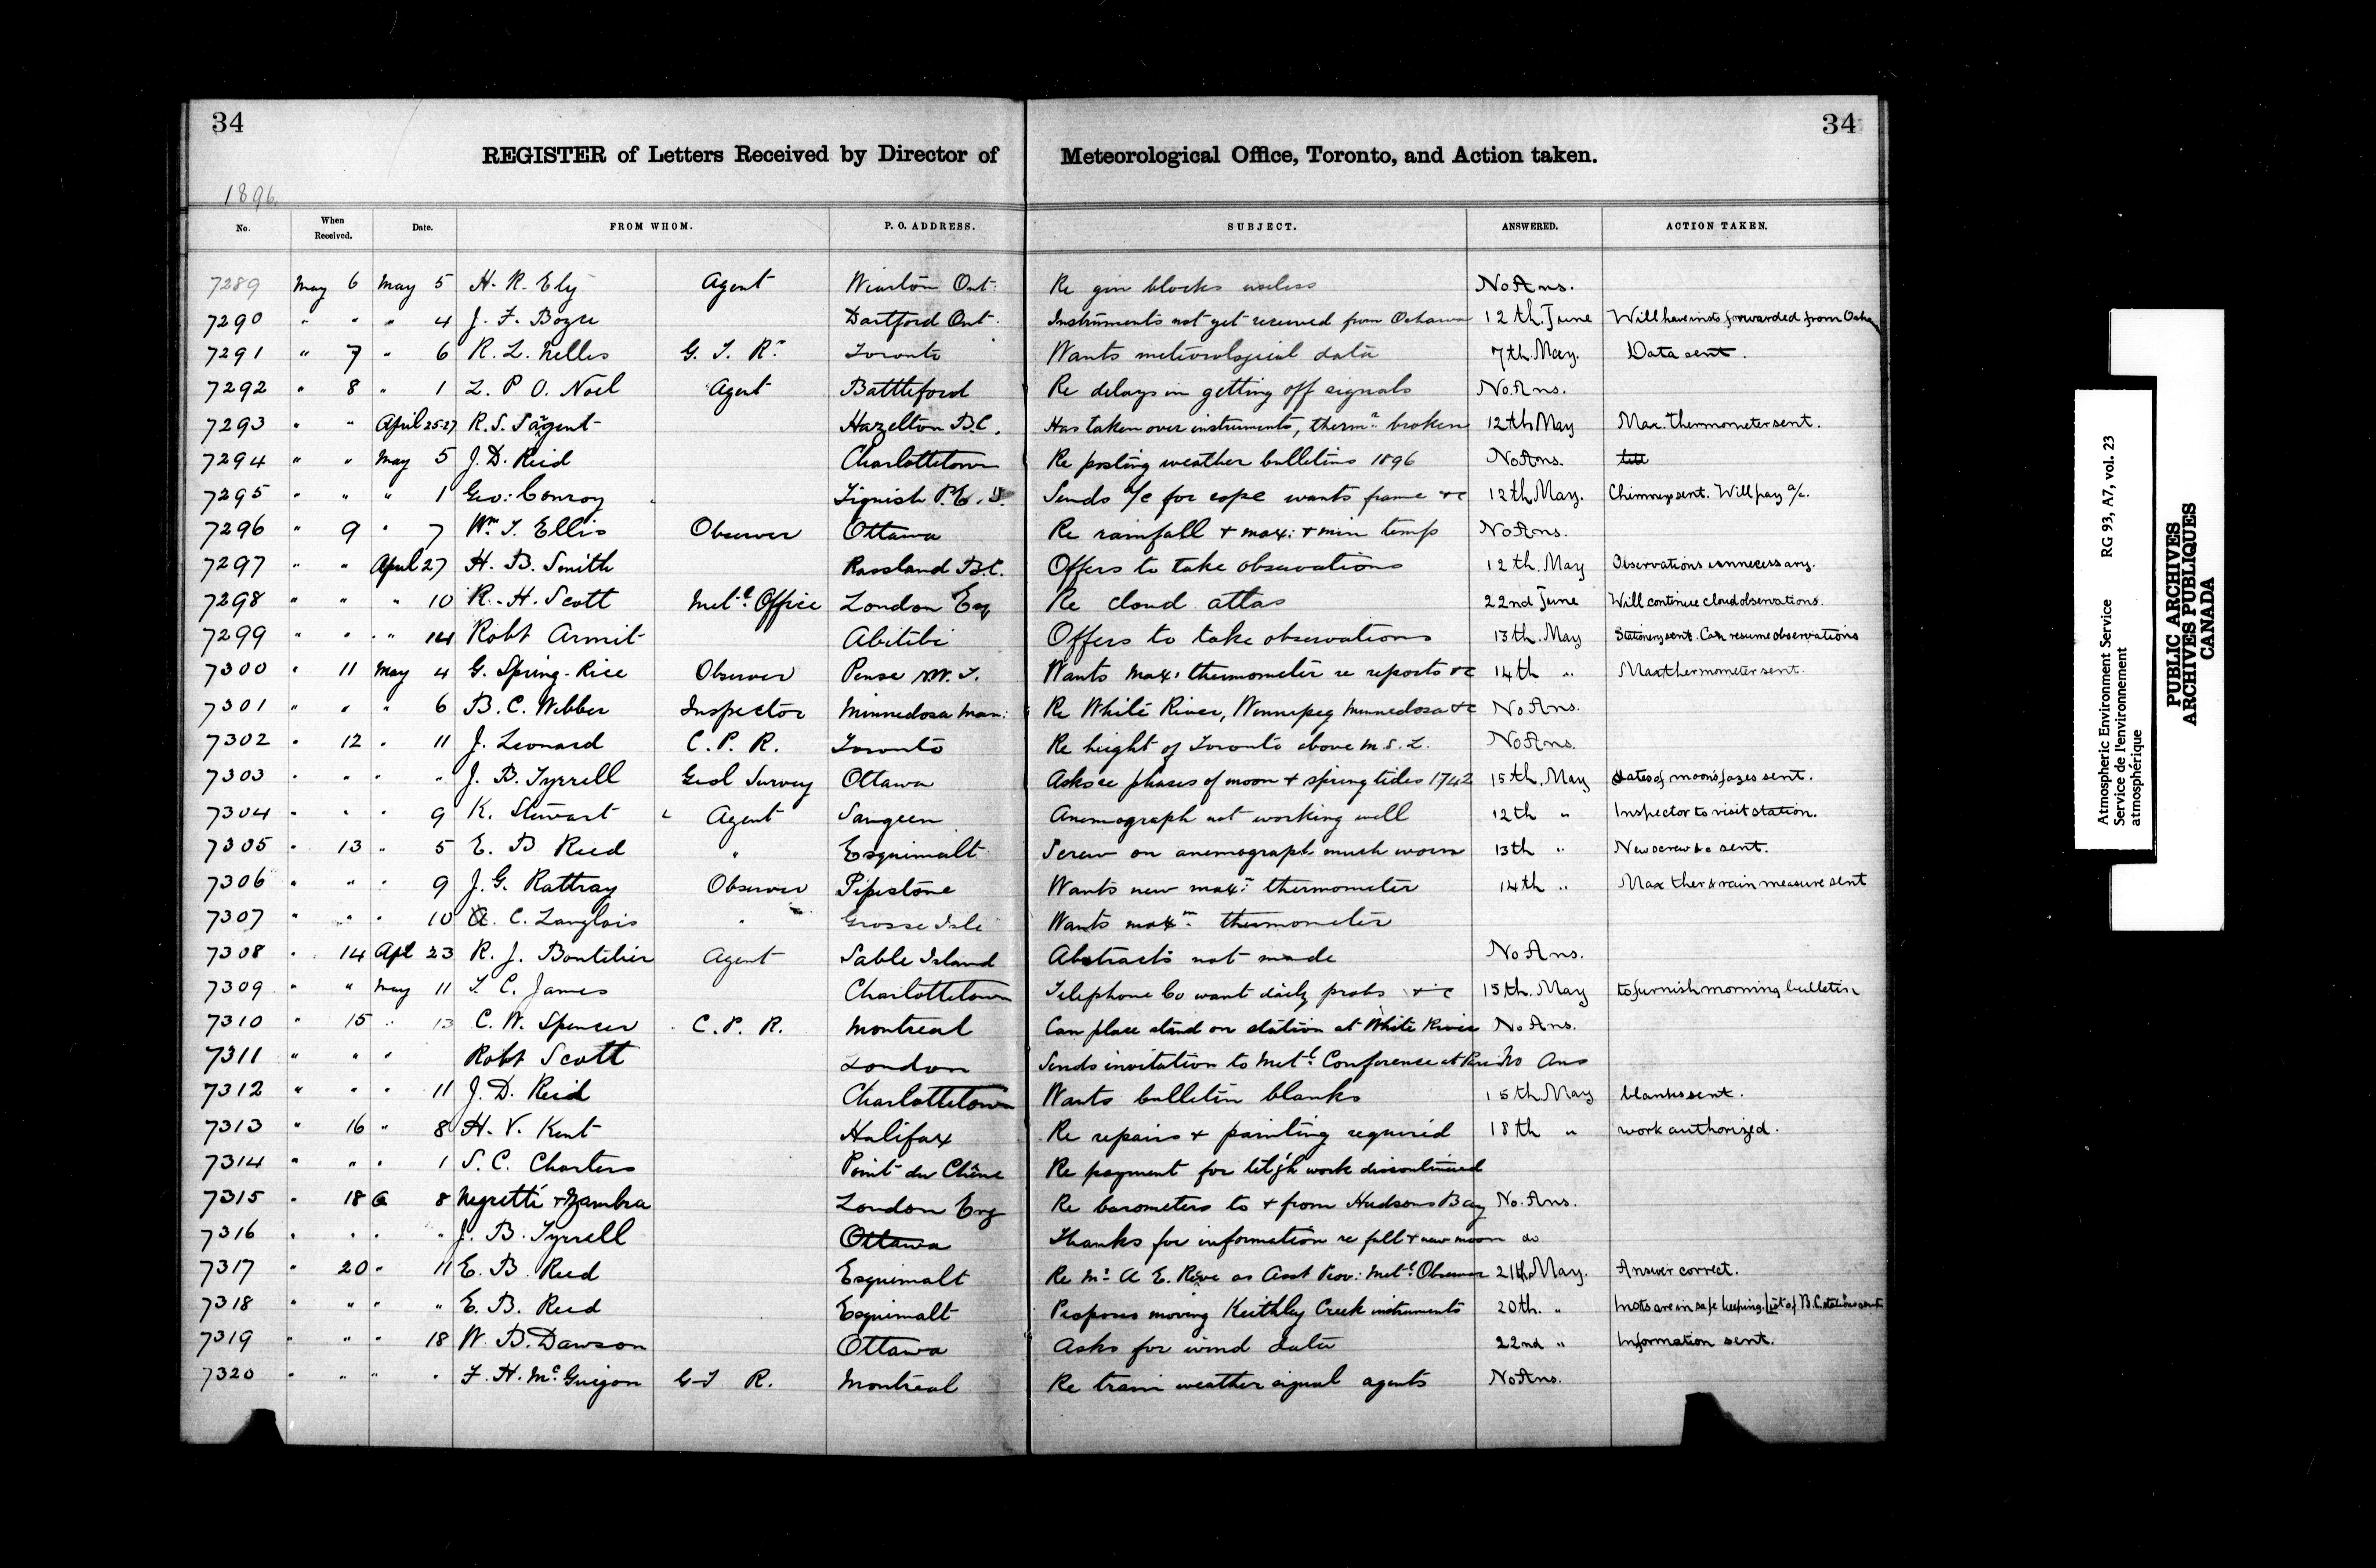 34 34
REGISTER of Letters Received by Director of Meteorological Office, Toronto, and Action taken.
1896.
No. When Received. Date. FROM WHOM. P. O. ADDRESS. SUBJECT. ANSWERED. ACTION TAKEN.
7289 May 6 May 5 H. R. Ely Agent Wiarton Ont. Re gin blocks useless No Ans.
7290 " " " 4 J. F. Boyce Dartford Ont. Instruments not yet received from Oshawa 12th. June Will have insts forwarded from Osha
7291 " 7 " 6 R. L. Nelles G. T. Ry Toronto Wants meteorological data 7th. May. Data sent.
7292 " 8 " 1 L. P. O. Noel Agent Battleford Re delays in getting off signals No. Ans.
7293 " " April 25-27 R. S. Sargent Hazelton B.C. Has taken over instruments, therm. broken 12th May Max. thermometer sent.
7294 " " May 5 J. D. Reid Charlottetown Re posting weather bulletins 1896 No Ans.
7295 " " " 1 Geo: Conroy Tignish P.E.I. Sends a/c for rope wants frame &c 12th. May. Chimneys sent. Will pay a/c.
7296 " 9 " 7 Wm. T. Ellis Observer Ottawa Re rainfall & max: & min temp No Ans.
7297 " " April 27 H. B. Smith Rossland B.C. Offers to take observations 12th. May Observations unnecessary.
7298 " " " 10 R. H. Scott Metl. Office London Eng Re cloud atlas 22nd June Will continue cloud observations.
7299 " " " 14 Robt Armit Abitibi Offers to take observations 13th. May Stationery sent. Can resume observations
7300 " 11 May 4 G. Spring-Rice Observer Pense N.W.T. Wants max: thermometer re reports &c 14th " Max thermometer sent.
7301 " " " 6 B. C. Webber Inspector Minnedosa Man: Re White River, Winnipeg Minnedosa &c No Ans.
7302 " 12 " 11 J. Leonard C. P. R. Toronto Re height of Toronto above M. S. L. No Ans.
7303 " " " " J. B. Tyrrell Geol Survey Ottawa Asks re phases of moon & spring tides 1742 15th. May dates of moons fazes sent.
7304 " " " 9 K. Stewart Agent Saugeen Anemograph not working well 12th " Inspector to visit station.
7305 " 13 " 5 E. B Reed " Esquimalt Screw on anemograph much worn 13th " New screw &c sent.
7306 " " " 9 J. G. Rattray Observer Pipestone Wants new max: thermometer 14th " Max ther & rain measure sent
7307 " " " 10 A. C. Langlois " Grosse Isle Wants maxm. thermometer
7308 " 14 Apl 23 R. J. Boutilier Agent Sable Island Abstracts not made No Ans.
7309 " " May 11 T. C. James Charlottetown Telephone Co want daily probs &c 15th. May to furnish morning bulletin
7310 " 15 " 13 C. W. Spencer C. P. R. Montreal Can place stand on station at White River No Ans.
7311 " " " Robt Scott London Sends invitation to Metl. Conference at No Ans
7312 " " " 11 J. D. Reid Charlottetown Wants bulletin blanks 15th May blanks sent.
7313 " 16 " 8 H. V. Kent Halifax Re repairs & painting required 18th " work authorized.
7314 " " " 1 S. C. Charters Point du Chêne Re payment for tel'gh work discontinued
7315 " 18 8 Negretti & Zambra London Eng Re barometers to & from Hudsons Bay No. Ans.
7316 " " " " J. B. Tyrrell Ottawa Thanks for information re full & new moon do
7317 " 20 " 11 E. B. Reed Esquimalt Re Mr A E. as Asst Prov: Metl. Observer 21th May. Answer correct.
7318 " " " " E. B. Reed Esquimalt Proposes moving Keithley Creek instruments 20th. " Insts are in safe keeping. List of B.C. stations sent
7319 " " " 18 W. B. Dawson Ottawa Asks for wind data 22nd " Information sent.
7320 " " " " F. H. McGuigan G T R. Montreal Re train weather signal agents No Ans.
Atmospheric Environment Service RG 93, A7, vol. 23
Service de l'environnement
atmosphérique
PUBLIC ARCHIVES
ARCHIVES PUBLIQUES
CANADA